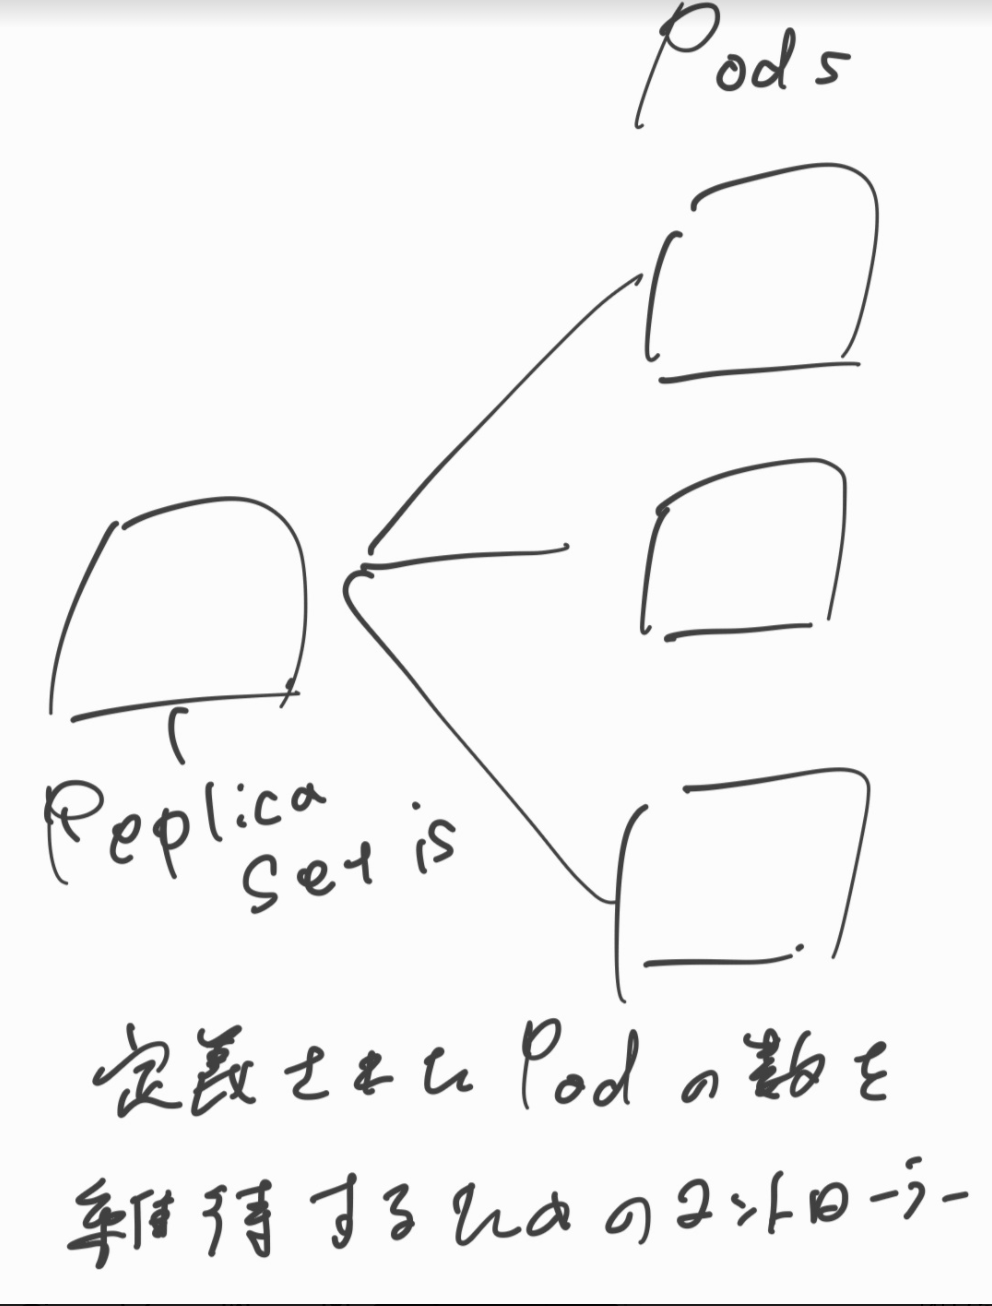 Pods
Replica
Set is
定義された Pod の数を
維持するためのコントローラー